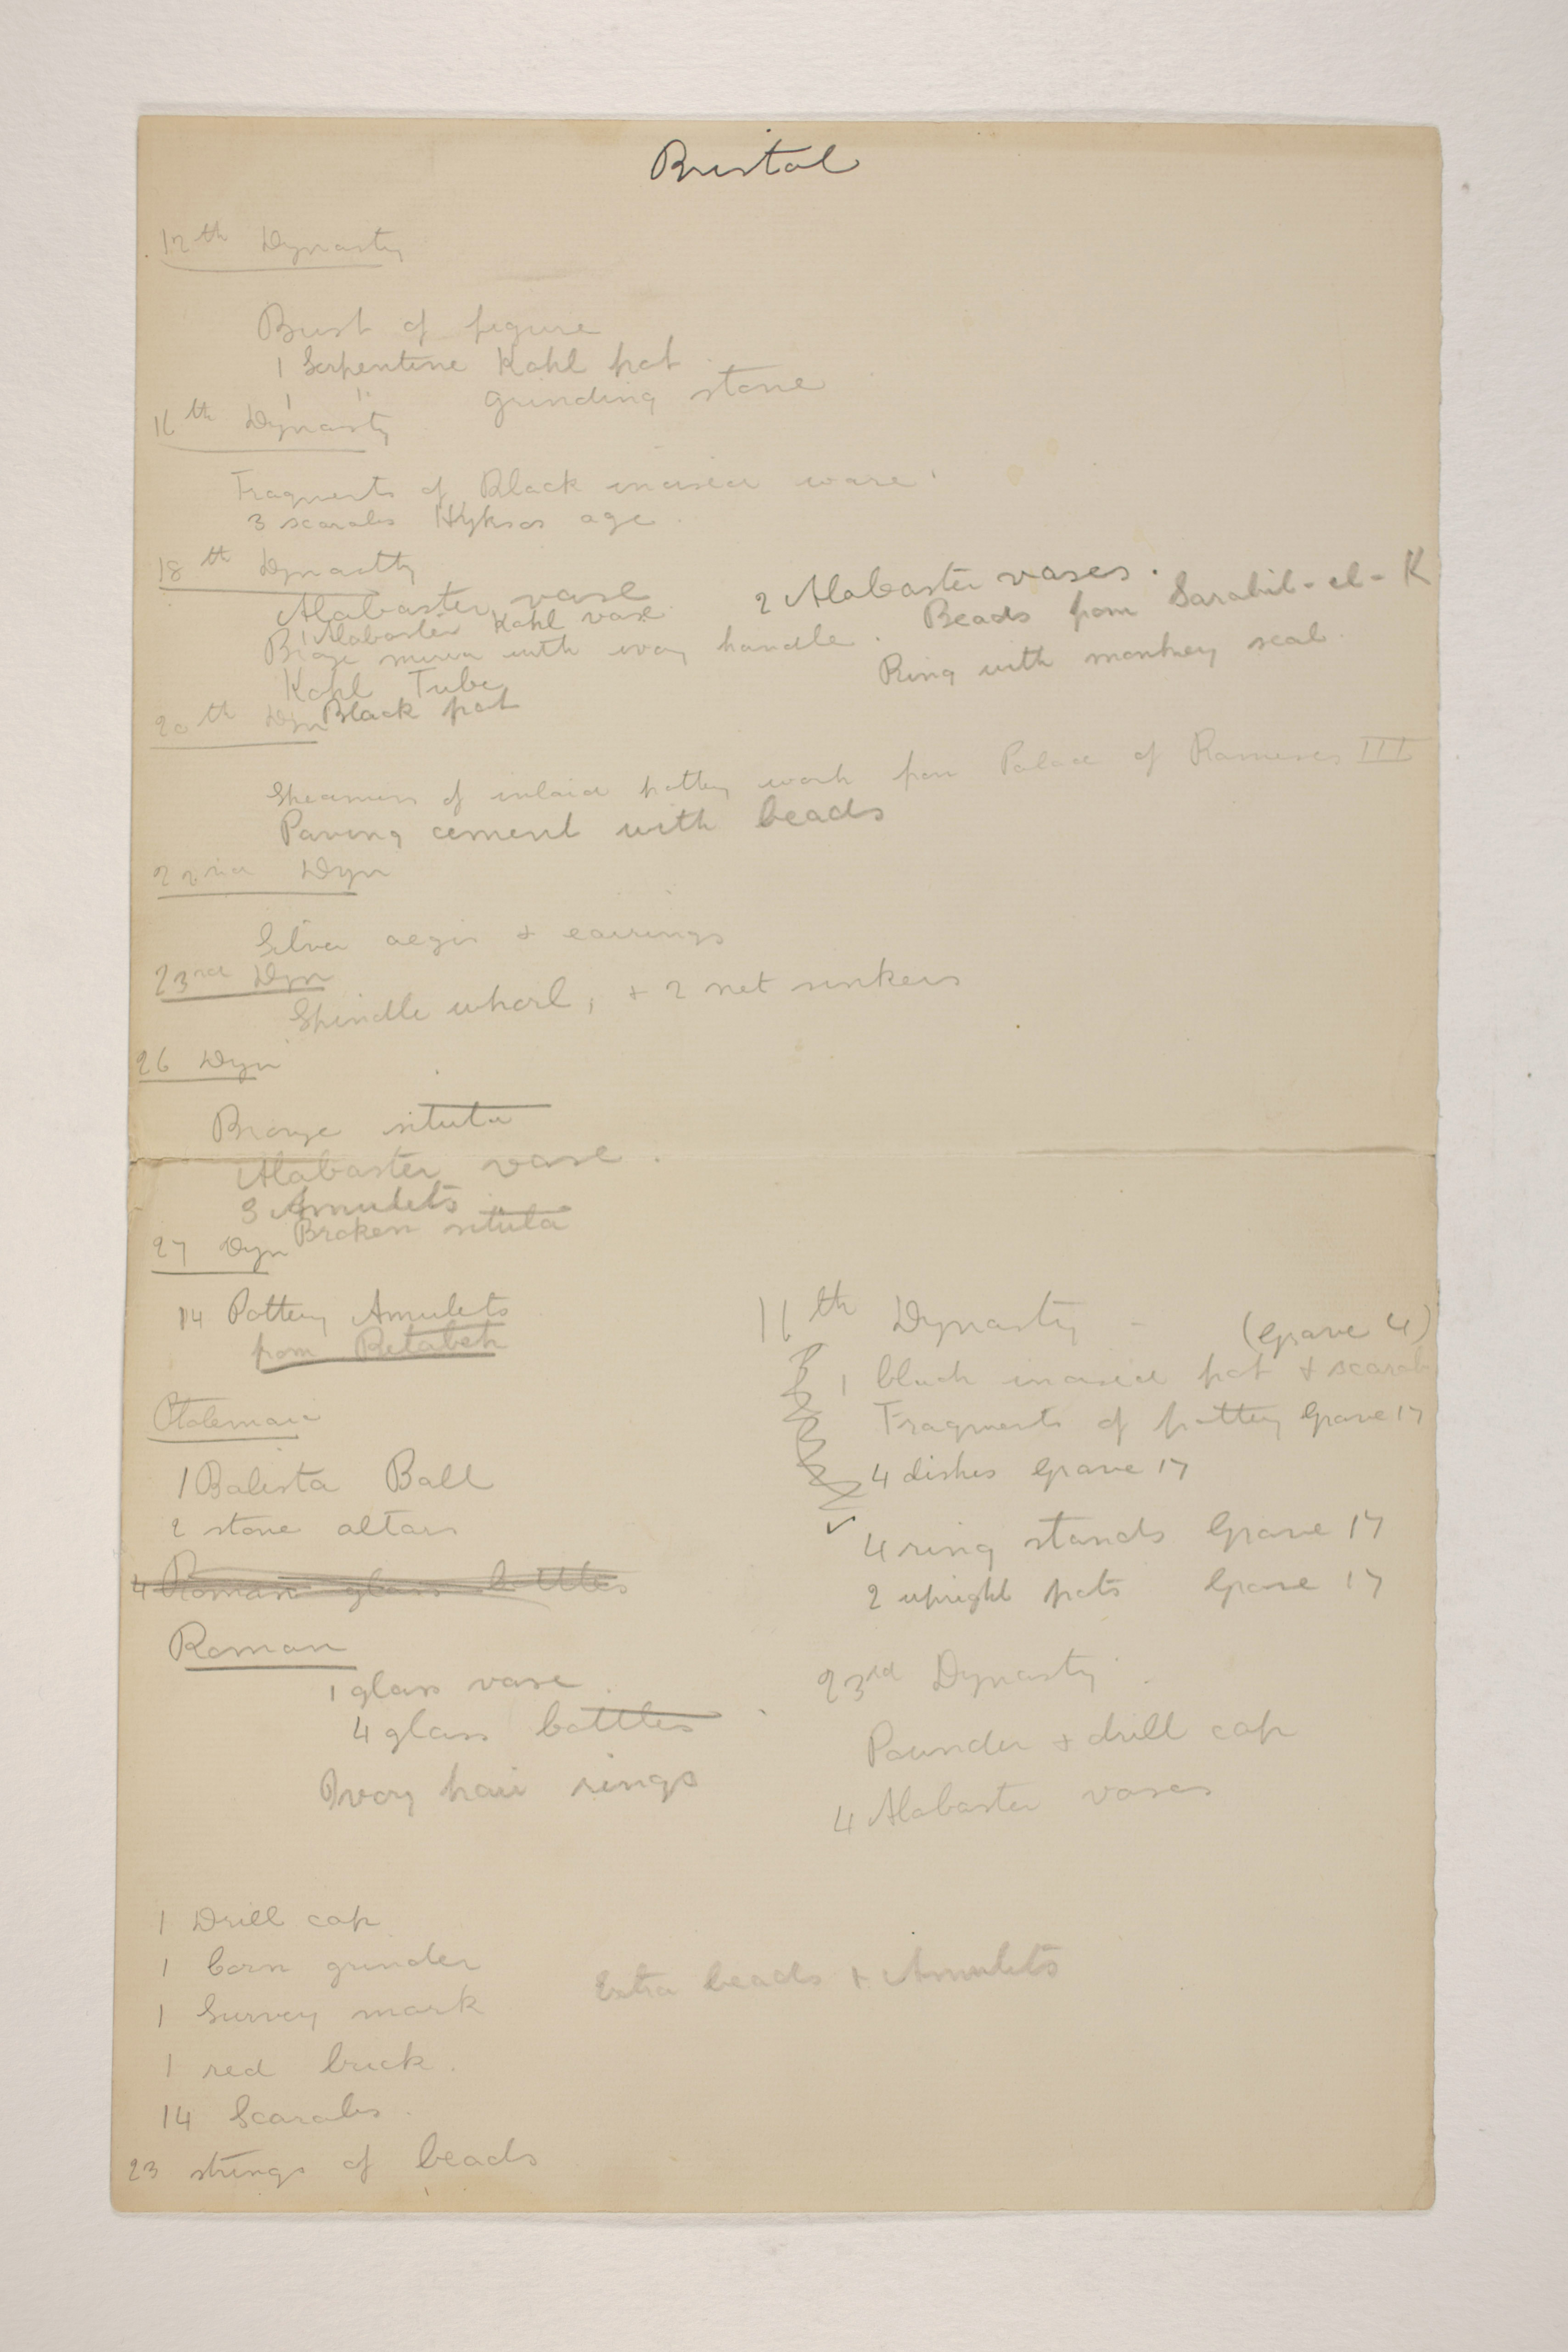 Bristol
12th Dynasty
Bust of figure
1 Serpentine Kohl pot
1 " grinding stone
16th Dynasty
Fragments of Black incised ware.
3 scarabs Hyksos age.
18th Dynasty
Alabaster vase
1 Alabaster Kohl vase
Bronze mirror with ivory handle.
Kohl Tube
Black pot
2 Alabaster vases.
Beads from Sarabit-el-K
Ring with monkey seal.
20th Dyn
Specimens of inlaid pottery work from Palace of Rameses III
Paving cement with beads
22nd Dyn
Silver aegis + earrings
23rd Dyn
Spindle whorl, + 2 net sinkers
26 Dyn
Bronze situla
Alabaster vase.
3 Amulets
Broken situla
27 Dyn
14 Pottery Amulets
from Retabeh
Ptolemaic
1 Balista Ball
2 stone altars
4 Roman glass bottles
Roman
1 glass vase.
4 glass bottles
Ivory hair rings
11th Dynasty - (Grave 4)
1 black incised pot + scarab
Fragments of pottery Grave 17
4 dishes Grave 17
4 ring stands Grave 17
2 upright pots Grave 17
23rd Dynasty.
Pounder + drill cap
4 Alabaster vases
1 Drill cap
1 Corn grinder
1 Survey mark
1 red brick.
14 Scarabs.
23 strings of beads
Extra beads + Amulets